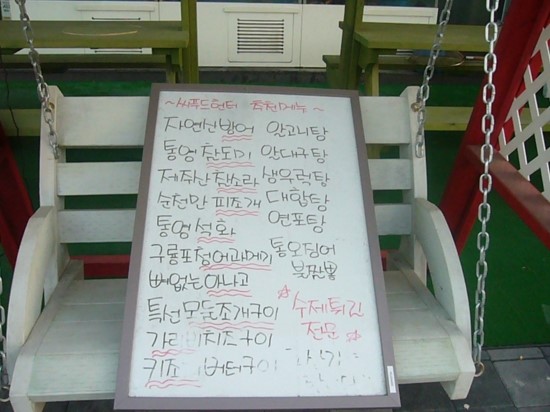 ~씨푸드헌터 추천메뉴~
자연산방어 안고니탕
통영 참도미 안대구탕
제주산 참소라 생우럭탕
순천만 피조개 대합탕
통영 석화 연포탕
구룡포청어과메기 통오징어
뼈없는아나고 불짬뽕
특선모듬조개구이 ☆수제튀김
가리 치즈구이 전문☆
키조 버터구이